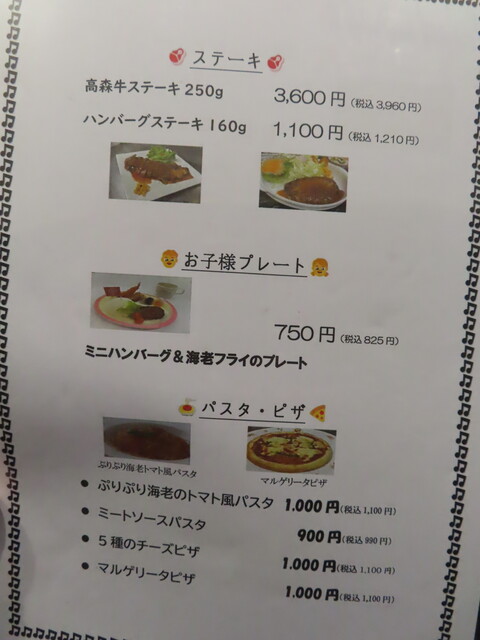 ステーキ
高森牛ステーキ250g 3,600円(税込3,960円)
ハンバーグステーキ160g 1,100円(税込1,210円)
お子様プレート
750円(税込825円)
ミニハンバーグ&海老フライのプレート
パスタ・ピザ
ぷりぷり海老トマト風パスタ マルゲリータピザ
● ぷりぷり海老のトマト風パスタ 1.000円(税込1,100円)
● ミートソースパスタ 900円(税込990円)
● 5種のチーズピザ 1.000円(税込1,100円)
● マルゲリータピザ 1.000円(税込1,100円)